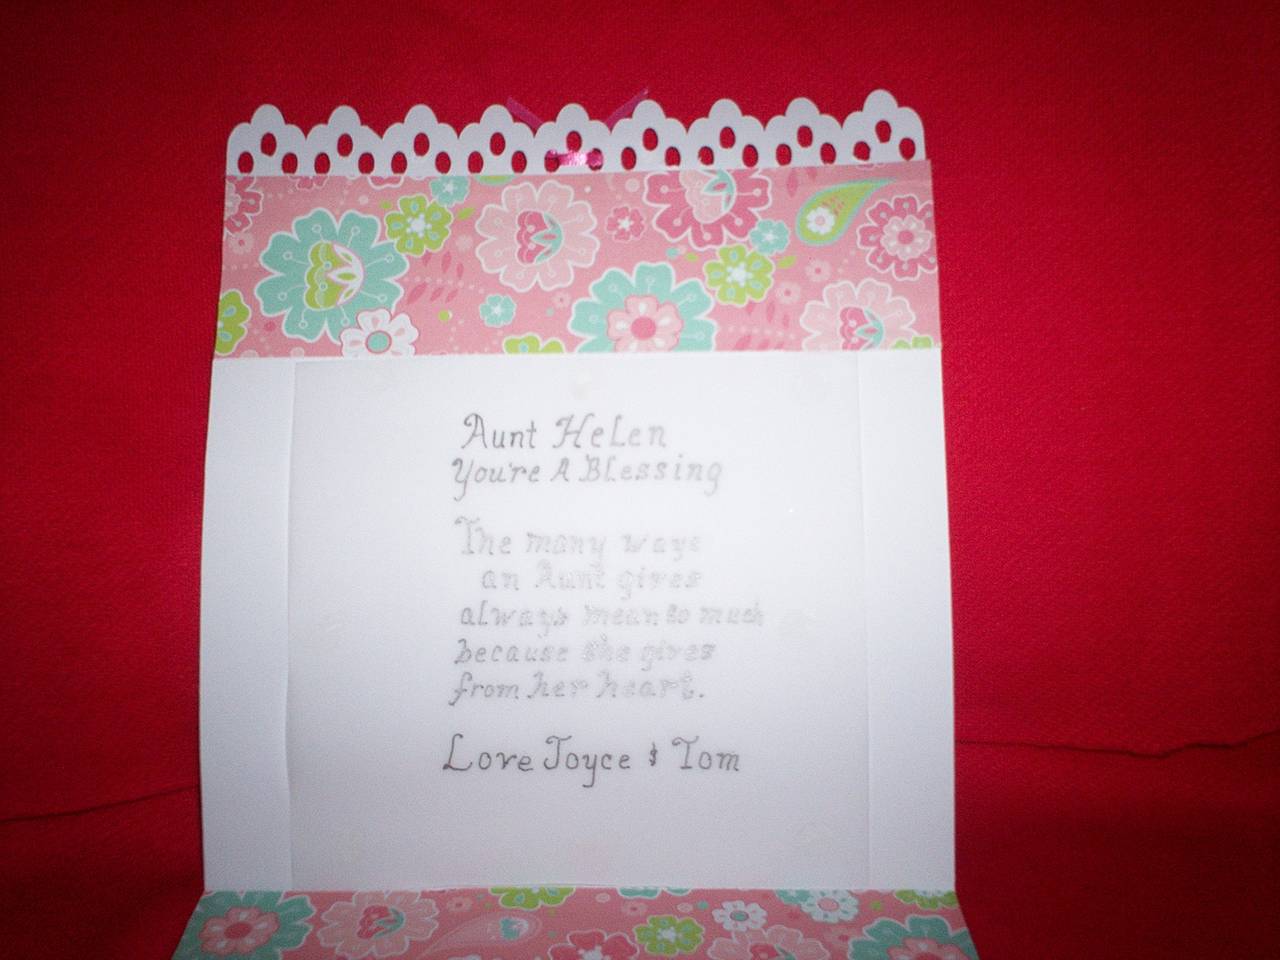 Aunt Helen
You're A Blessing
The many ways
an Aunt gives
always mean so much
because she gives
from her heart.
Love Joyce & Tom